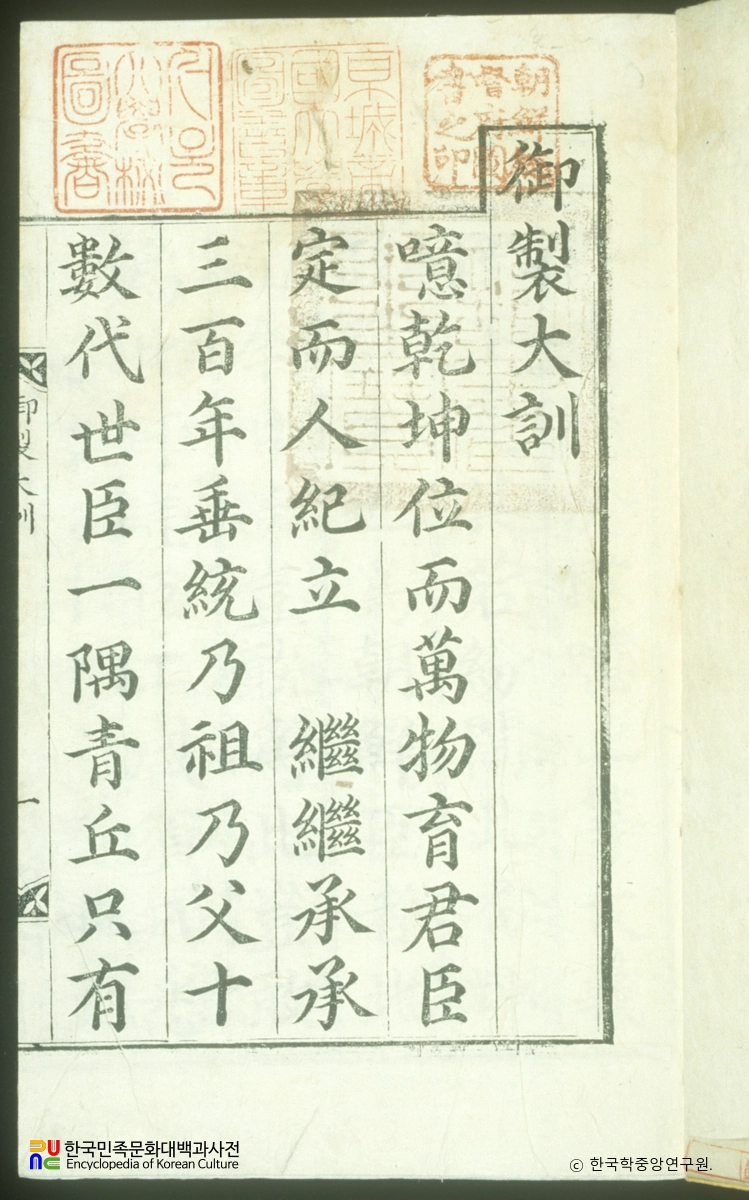 御製大訓
噫乾坤位而萬物育君臣
定而人紀立 繼繼承承
三百年垂統乃祖乃父十
數代世臣一隅青丘只有
御製大訓
一
朝鮮總
督府圖
書之印
圖書
한국민족문화대백과사전
Encyclopedia of Korean Culture
© 한국학중앙연구원.